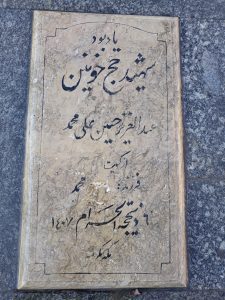 یادبود
شهید حج خونین
عبدالعزیز حسین علی محمد
از کویت
فرزند: محمد
۶ ذیحجة الحرام ۱۴۰۷
مکه مکرمه